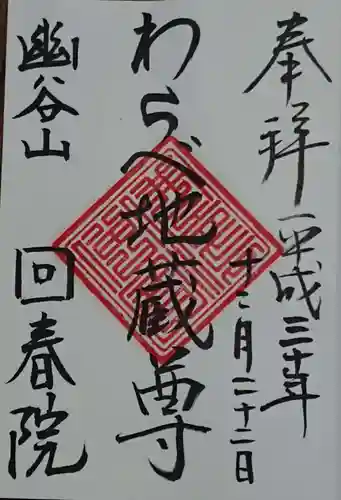 奉拝
平成三十年
十二月二十二日
わらべ地蔵尊
幽谷山
回春院